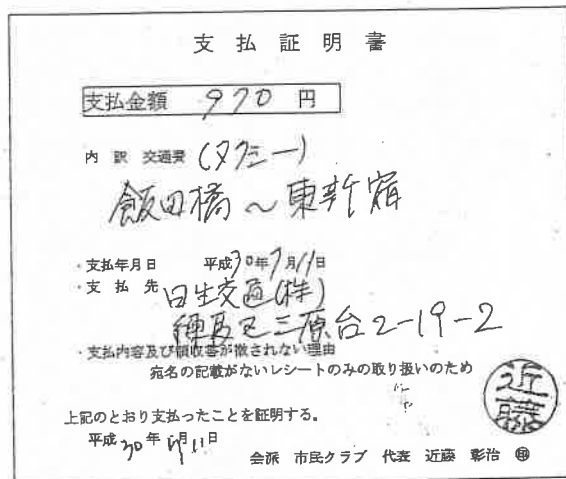 支払証明書
支払金額 970 円
内訳 交通費 (タクシー)
飯田橋～東新宿
・支払年月日 平成30年7月11日
・支払先 日生交通(株)
練馬区三原台2-19-2
・支払内容及び領収書が徴されない理由
宛名の記載がないレシートのみの取り扱いのため
近藤
上記のとおり支払ったことを証明する。
平成30年 月11日
会派 市民クラブ 代表 近藤 彰治 ㊞